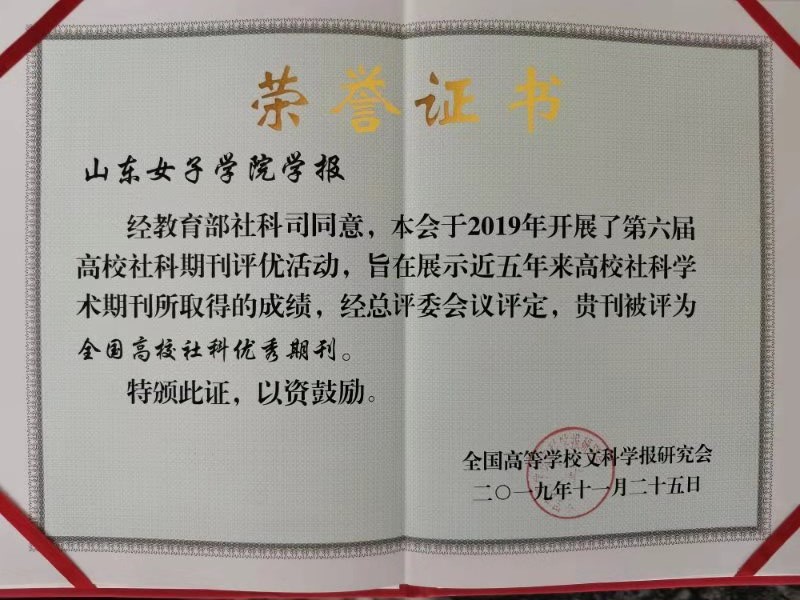 荣誉证书
山东女子学院学报
经教育部社科司同意，本会于2019年开展了第六届
高校社科期刊评优活动，旨在展示近五年来高校社科学
术期刊所取得的成绩，经总评委会议评定，贵刊被评为
全国高校社科优秀期刊。
特颁此证，以资鼓励。
全国高等学校文科学报研究会
二〇一九年十一月二十五日